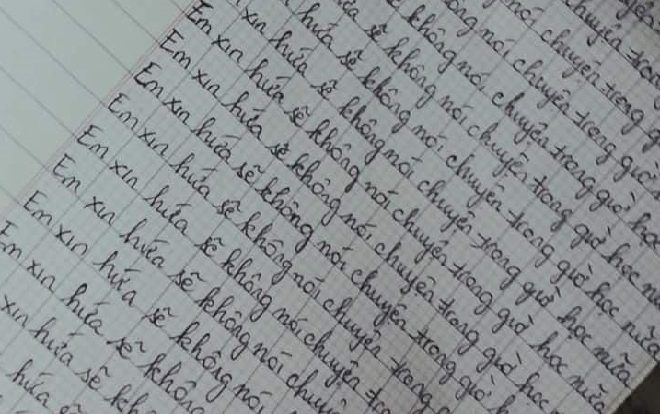 chuyện trong
nói chuyện trong
không nói chuyện trong giờ
hứa sẽ không nói chuyện trong giờ học
Em xin hứa sẽ không nói chuyện trong giờ học nữa
Em xin hứa sẽ không nói chuyện trong giờ học nữa
Em xin hứa sẽ không nói chuyện trong giờ học nữa
Em xin hứa sẽ không nói chuyện trong giờ học nữa
Em xin hứa sẽ không nói chuyện trong giờ học
Em xin hứa sẽ không nói chuyện trong giờ
Em xin hứa sẽ không nói chuyện
Em xin hứa sẽ không nói
xin hứa sẽ
hứa